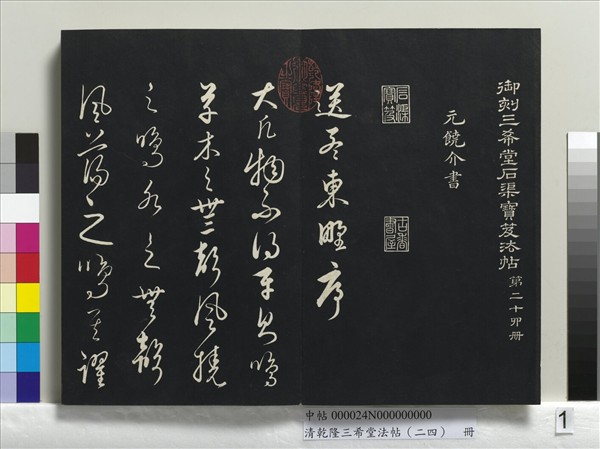 御刻三希堂石渠寶笈法帖 第二十四冊
元饒介書
石渠寶笈
送孟東野序
大凡物不得平則鳴
草木之無聲風撓
之鳴水之無聲
風蕩之鳴其躍
中帖 000024N000000000
清乾隆三希堂法帖（二四） 冊
1